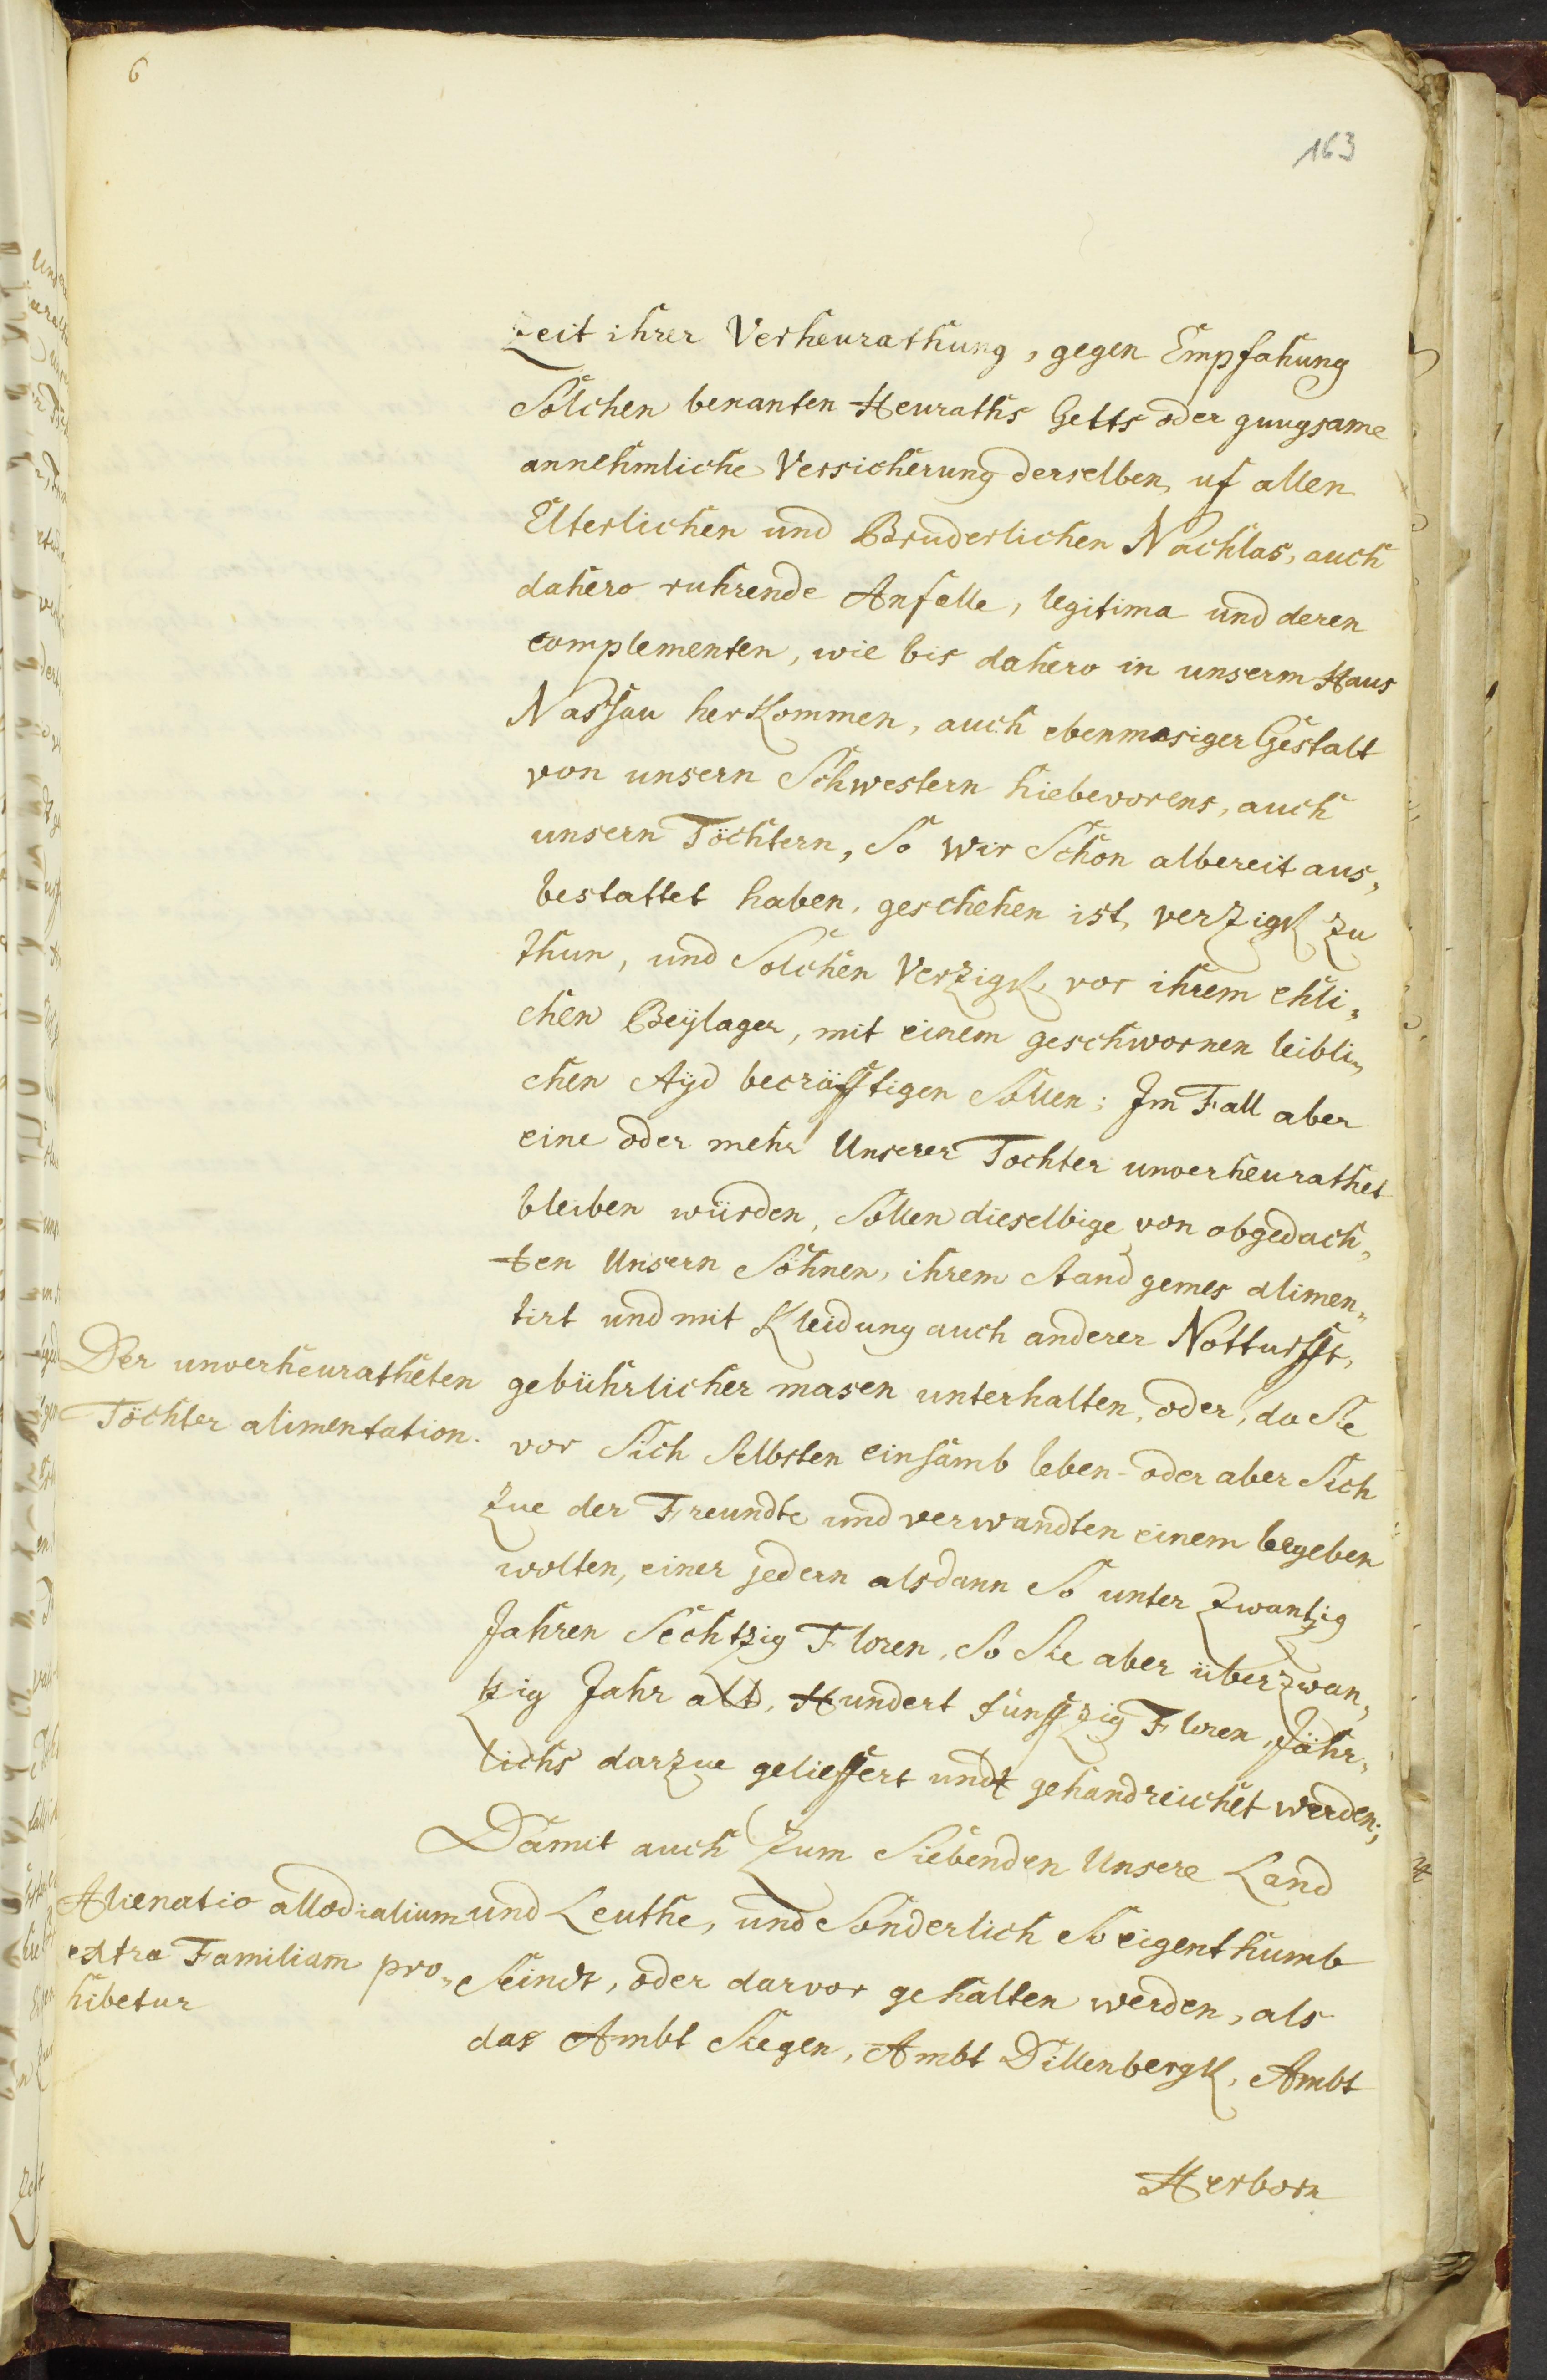 6
163
Zeit ihrer Verheurathung, gegen Empfahung
Solchen benanten Heuraths Gelts oder gnugsame
annehmliche Versicherung derselben, uf allen
Elterlichen und Bruderlichen Nachlas, auch
dahero ruhrende Anfelle, legitima und deren
complementen, wie bis dahero in unserm Haus
Nassau herkommen, auch ebenmasiger Gestalt
von unsern Schwestern hiebevorens, auch
unsern Töchtern, So wir Schon albereit aus„
bestattet haben, geschehen ist, verzigk zu
thun, und Solchen Verzigk, vor ihrem ehli„
chen Beÿlager, mit einem geschwornen leibli„
chen Aÿd becräfftigen Sollen; Im Fall aber
eine oder mehr Unserer Tochter unverheurathet
bleiben würden, Sollen dieselbige von obgedach„
ten Unsern Söhnen, ihrem Stand gemes alimen„
tirt und mit Kleidung auch anderer Notturfft,
Der unverheuratheten
Töchter alimentation.
gebührlicher masen unterhalten, oder, da Sie
vor Sich Selbsten einsamb leben - oder aber Sich
zue der Freundte und verwandten einem begeben
wolten, einer jedern alsdann So unter zwantzig
Jahren Sechtzig Floren, So Sie aber über zwan„
tzig Jahr alt, Hundert funffzig Floren, Jähr„
lichs darzue gelieffert undt gehandreichet werden;
Damit auch Zum Siebenden Unsere Land
Alienatio allodialium
extra Familiam pro„
hibetur
und Leuthe, und Sonderlich So eigenthumb
Seindt, oder darvor gehalten werden, als
das Ambt Siegen, Ambt Dillenbergk, Ambt
Herborn